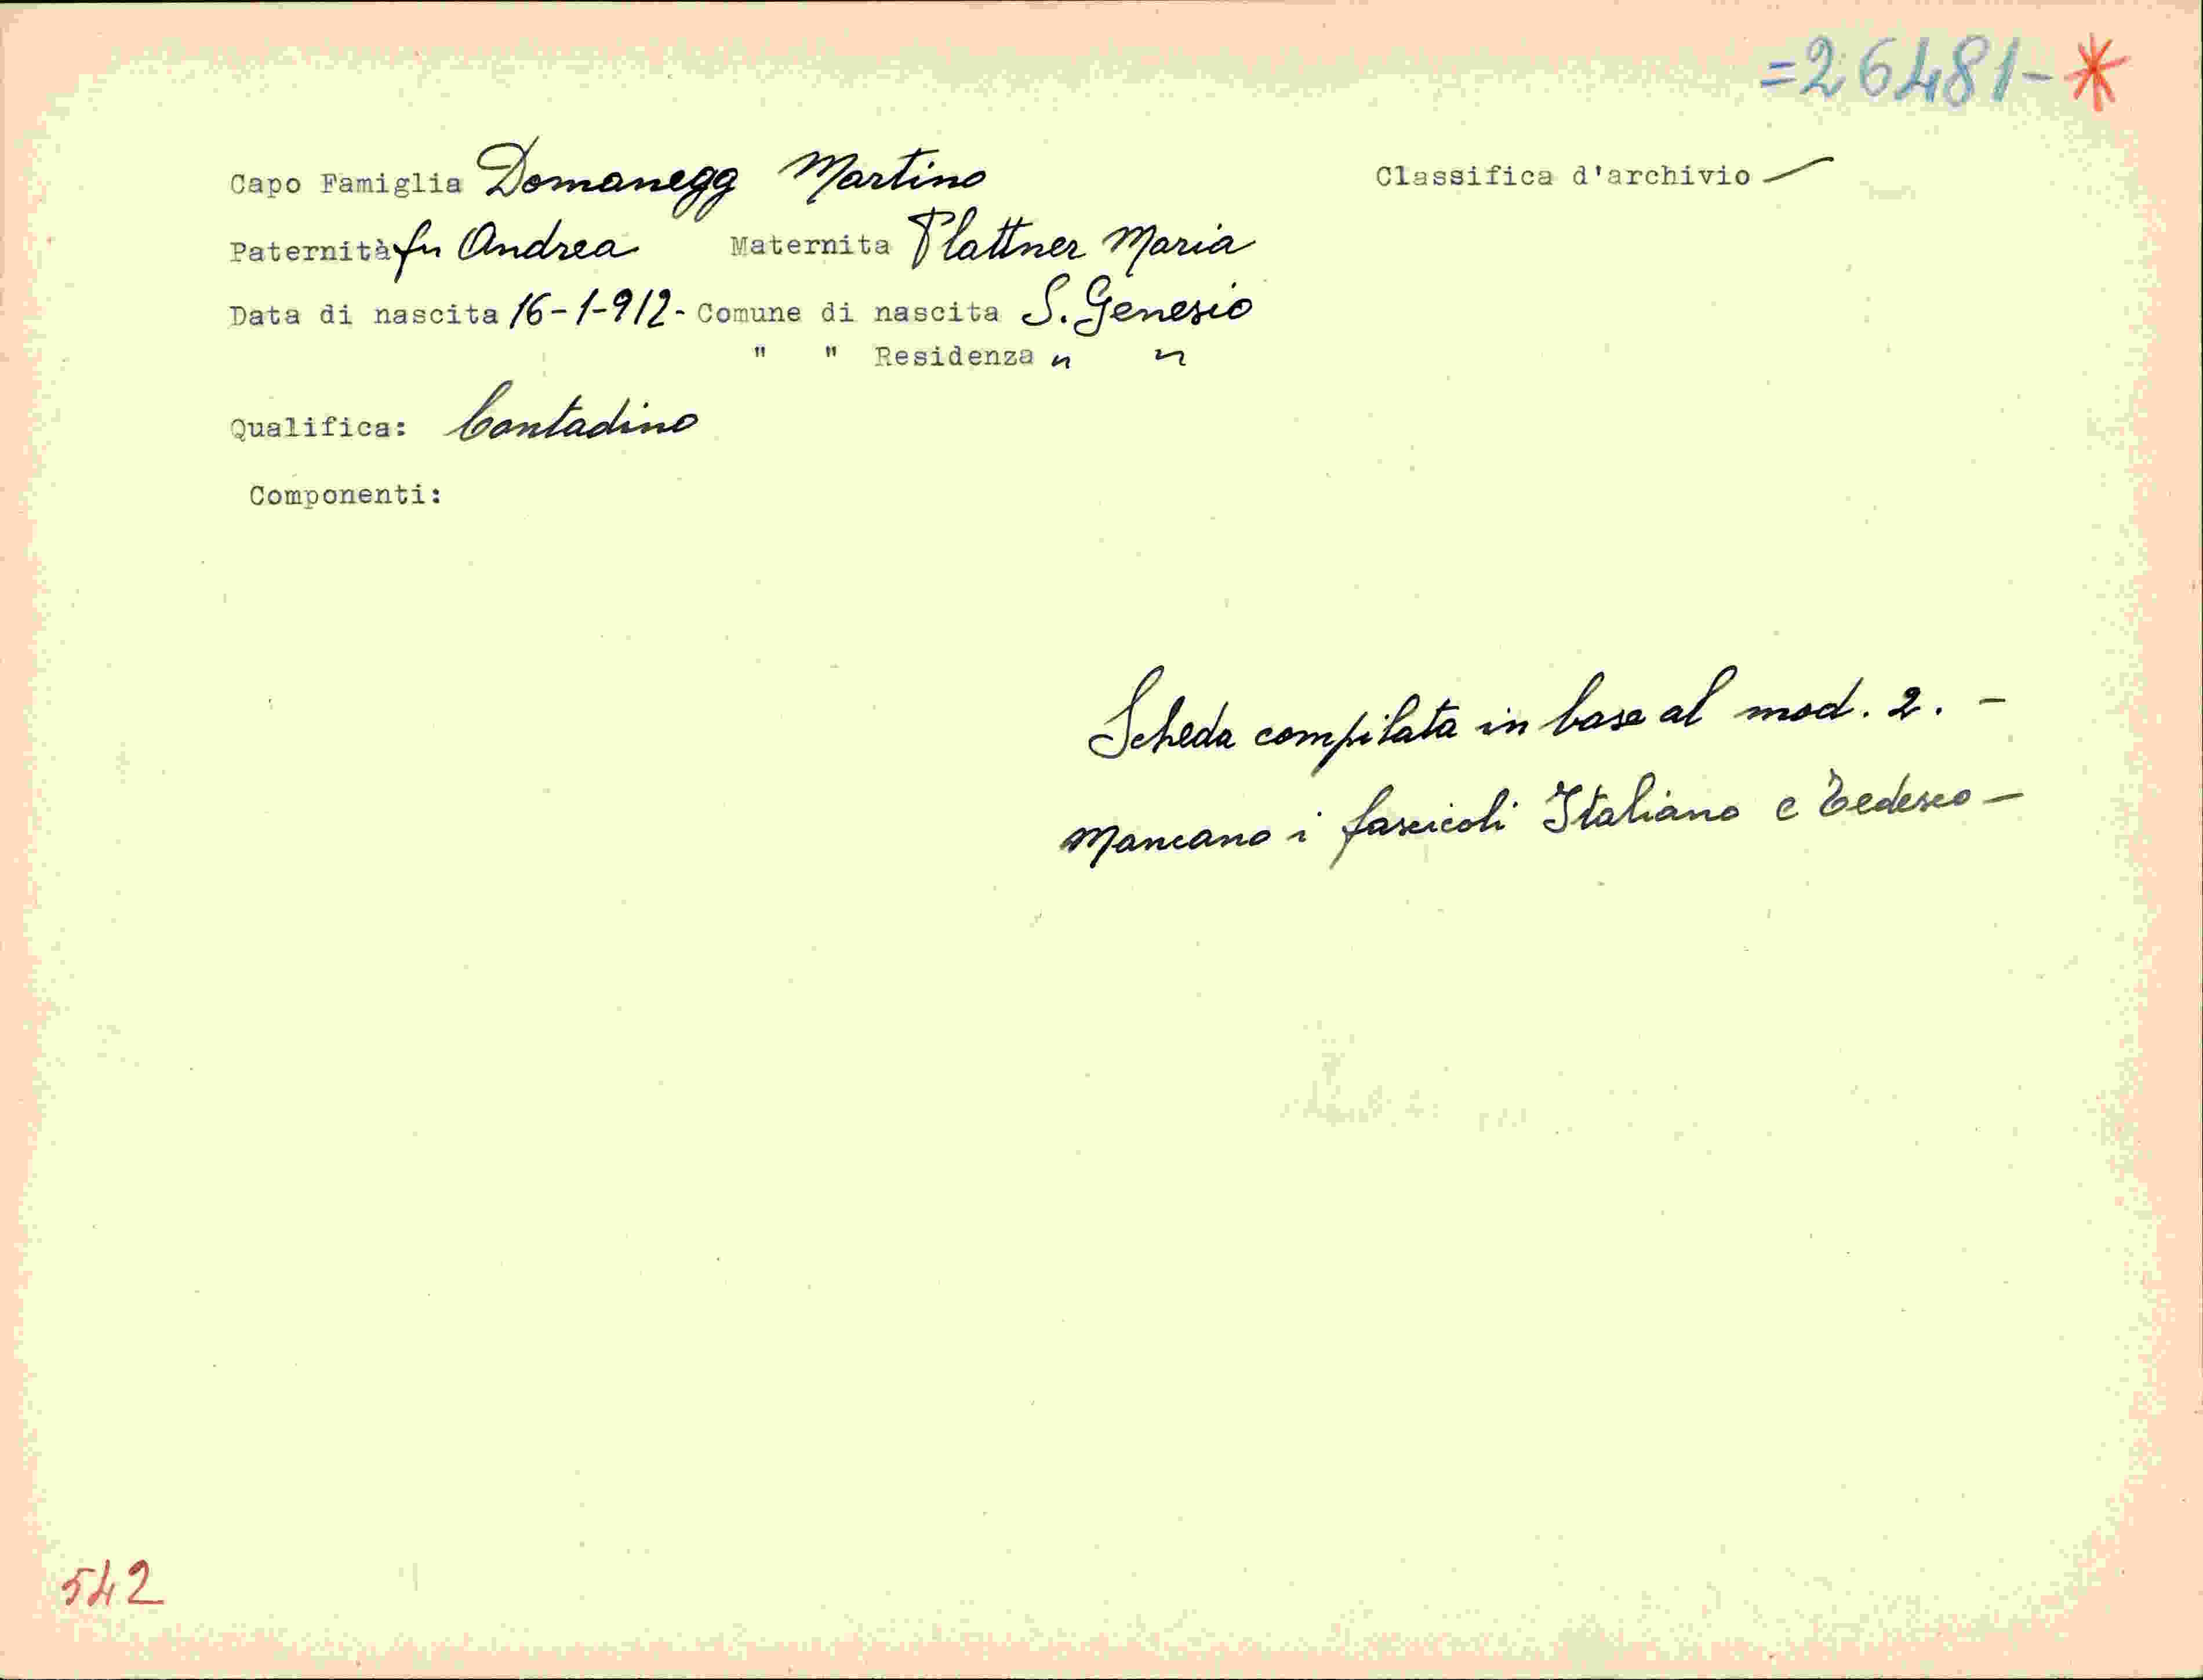 =26481-*
Capo Famiglia Domanegg Martino Classifica d'archivio —
Paternità fu Andrea Maternita Plattner Maria
Data di nascita 16-1-912- Comune di nascita S. Genesio
" " Residenza " "
Qualifica: Contadino
Componenti:
Scheda compilata in base al mod. 2. -
Mancano i fascicoli Italiano e Tedesco -
542